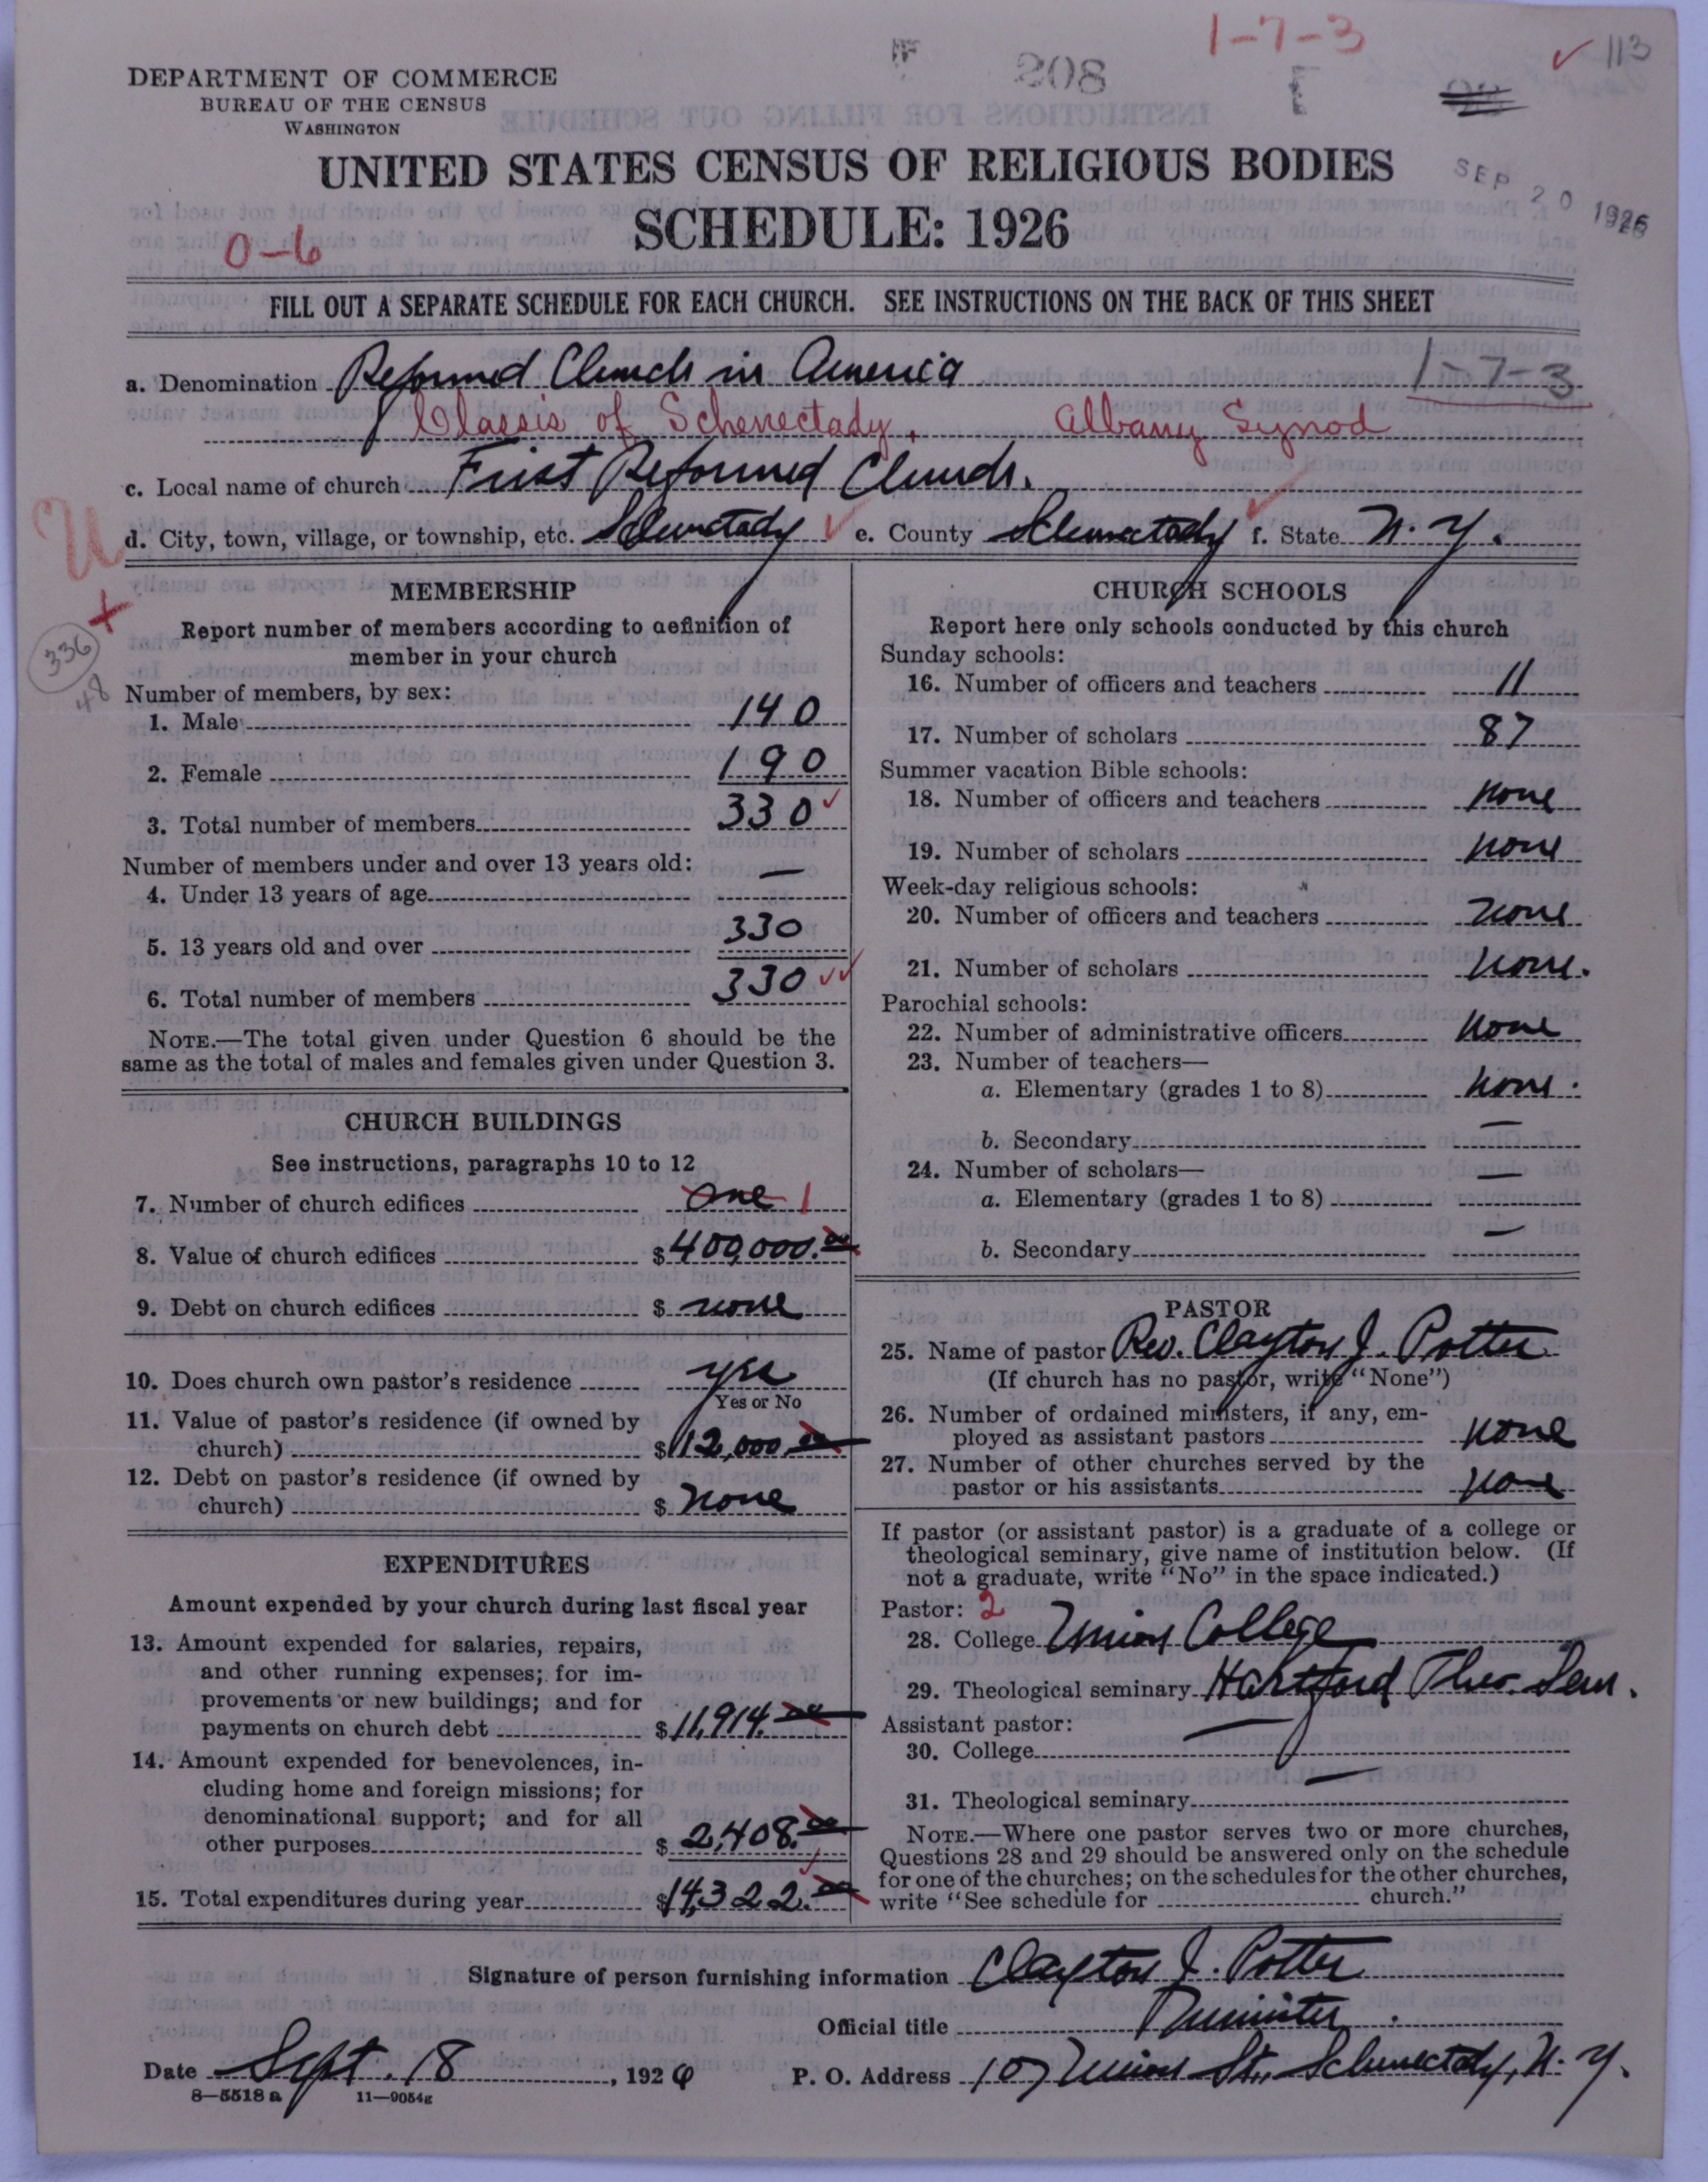 1-7-3
✓ 113
208
DEPARTMENT OF COMMERCE
BUREAU OF THE CENSUS
WASHINGTON
UNITED STATES CENSUS OF RELIGIOUS BODIES
SEP 20 1926
SCHEDULE: 1926
0-6
FILL OUT A SEPARATE SCHEDULE FOR EACH CHURCH. SEE INSTRUCTIONS ON THE BACK OF THIS SHEET
a. Denomination Reformed Church in America 1-7-3
Classis of Schenectady, Albany Synod
c. Local name of church First Reformed Church.
U
d. City, town, village, or township, etc. Schenectady ✓ e. County Schenectady ✓ f. State N.Y.
MEMBERSHIP
Report number of members according to definition of
member in your church
336
48
Number of members, by sex:
1. Male 140
2. Female 190
3. Total number of members 330 ✓
Number of members under and over 13 years old:
4. Under 13 years of age —
5. 13 years old and over 330
6. Total number of members 330 ✓✓
NOTE.—The total given under Question 6 should be the
same as the total of males and females given under Question 3.
CHURCH BUILDINGS
See instructions, paragraphs 10 to 12
7. Number of church edifices one 1
8. Value of church edifices $400,000.00
9. Debt on church edifices $ none
10. Does church own pastor's residence yes
Yes or No
11. Value of pastor's residence (if owned by
church) $12,000.00
12. Debt on pastor's residence (if owned by
church) $ none
EXPENDITURES
Amount expended by your church during last fiscal year
13. Amount expended for salaries, repairs,
and other running expenses; for im-
provements or new buildings; and for
payments on church debt $11,914.00
14. Amount expended for benevolences, in-
cluding home and foreign missions; for
denominational support; and for all
other purposes $ 2,408.00
15. Total expenditures during year $14,322.00
CHURCH SCHOOLS
Report here only schools conducted by this church
Sunday schools:
16. Number of officers and teachers 11
17. Number of scholars 87
Summer vacation Bible schools:
18. Number of officers and teachers none
19. Number of scholars none
Week-day religious schools:
20. Number of officers and teachers none
21. Number of scholars none.
Parochial schools:
22. Number of administrative officers none
23. Number of teachers—
a. Elementary (grades 1 to 8) none.
b. Secondary —
24. Number of scholars—
a. Elementary (grades 1 to 8) —
b. Secondary —
PASTOR
25. Name of pastor Rev. Clayton J. Potter
(If church has no pastor, write "None")
26. Number of ordained ministers, if any, em-
ployed as assistant pastors none
27. Number of other churches served by the
pastor or his assistants none
If pastor (or assistant pastor) is a graduate of a college or
theological seminary, give name of institution below. (If
not a graduate, write "No" in the space indicated.)
Pastor: 2
28. College Union College
29. Theological seminary Hartford Theo. Sem.
Assistant pastor:
30. College —
31. Theological seminary —
NOTE.—Where one pastor serves two or more churches,
Questions 28 and 29 should be answered only on the schedule
for one of the churches; on the schedules for the other churches,
write "See schedule for church."
Signature of person furnishing information Clayton J. Potter
Official title Minister
Date Sept. 18, 1926 P. O. Address 107 Union St., Schenectady, N.Y.
8—5518 a 11—9054g